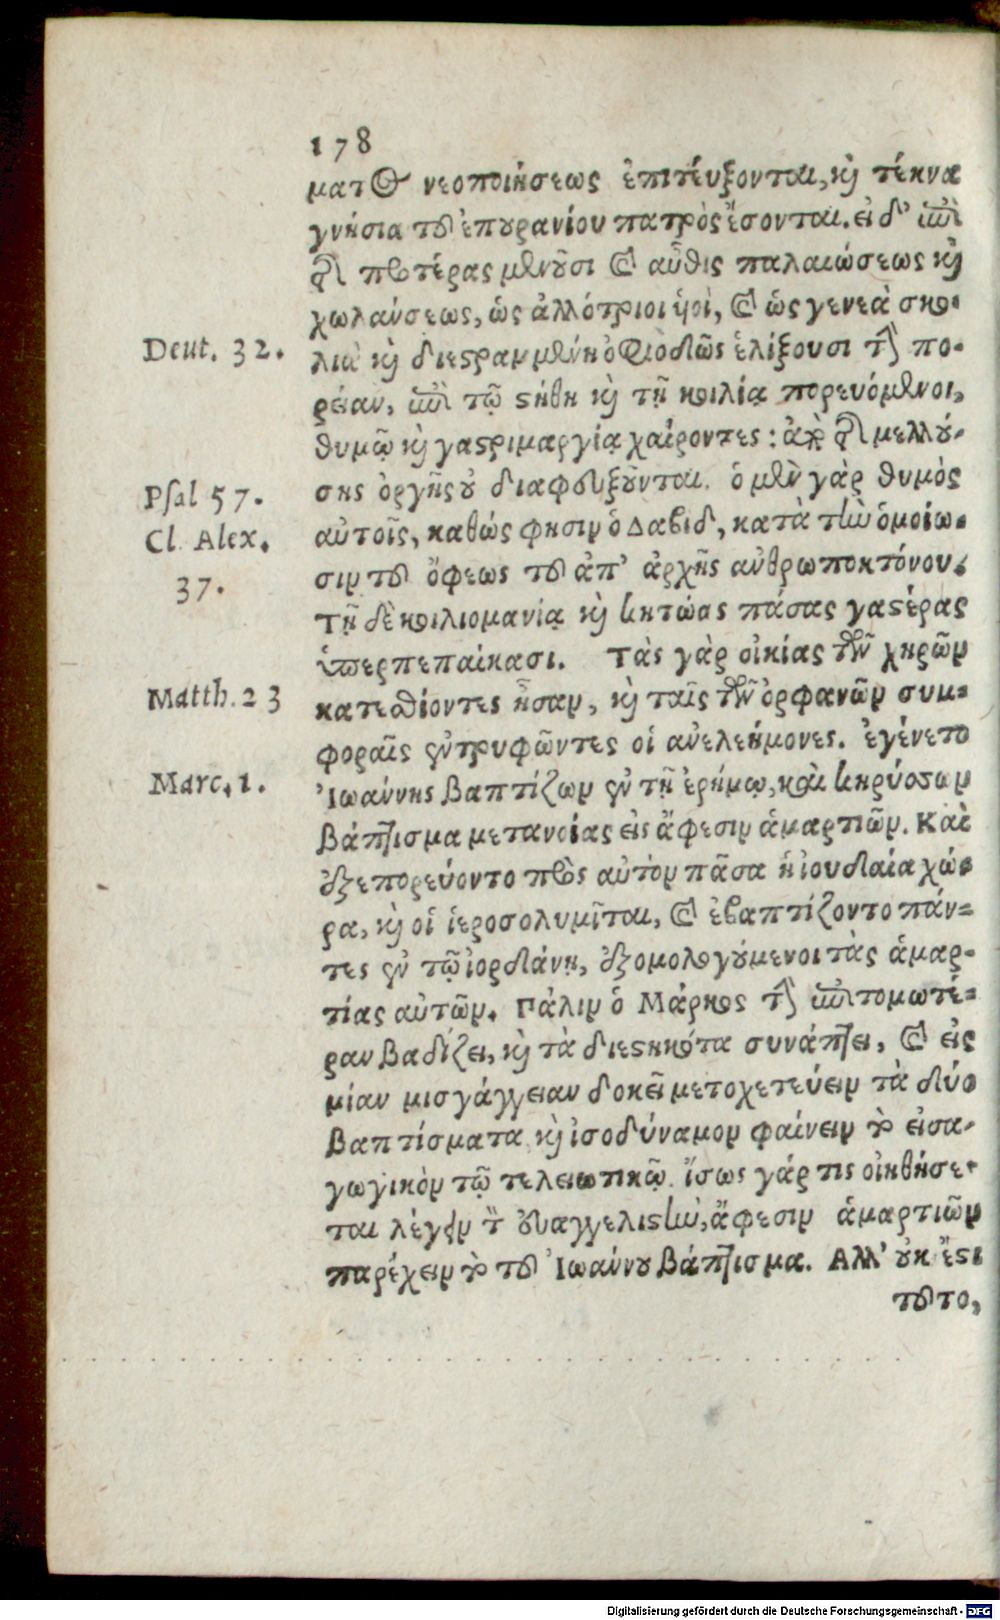 178
ματος νεοποιήσεως ἐπιτεύξονται, καὶ τέκνα
γνήσια τοῦ ἐπουρανίου πατρὸς ἔσονται. εἰ δ' ἐπὶ
τῆς προτέρας μενοῦσι καὶ αὖθις παλαιώσεως καὶ
χωλάνσεως, ὡς ἀλλότριοι υἱοὶ, καὶ ὡς γενεὰ σκο-
Deut. 32. λιὰ καὶ διεστραμμένη ὀφιοδῶς ἑλίξουσι τὴν πο-
ρείαν, ἐπὶ τῷ στήθη καὶ τῇ κοιλίᾳ πορευόμενοι,
θυμῷ καὶ γαστριμαργίᾳ χαίροντες: ἀπὸ τῆς μελλού-
Psal 57. σης ὀργῆς οὐ διαφευξοῦνται. ὁ μὲν γὰρ θυμὸς
Cl. Alex. αὐτοῖς, καθώς φησιν ὁ Δαβὶδ, κατὰ τὴν ὁμοίω-
37. σιν τοῦ ὄφεως τοῦ ἀπ' ἀρχῆς ἀνθρωποκτόνου.
Τῇ δὲ κοιλιομανίᾳ καὶ κητώας πάσας γαστέρας
ὑπερπεπαίκασι. Τὰς γὰρ οἰκίας τῶν χηρῶν
Matth. 23 κατεσθίοντες ἦσαν, καὶ ταῖς τῶν ὀρφανῶν συμ-
φοραῖς ἐντρυφῶντες οἱ ἀνελεήμονες. ἐγένετο
Marc. 1. Ἰωάννης βαπτίζων ἐν τῇ ἐρήμῳ, καὶ κηρύσσων
βάπτισμα μετανοίας εἰς ἄφεσιν ἁμαρτιῶν. Καὶ
ἐξεπορεύοντο πρὸς αὐτὸν πᾶσα ἡ ἰουδαία χώ-
ρα, καὶ οἱ ἱεροσολυμῖται, καὶ ἐβαπτίζοντο πάν-
τες ἐν τῷ ἰορδάνῃ, ἐξομολογούμενοι τὰς ἁμαρ-
τίας αὐτῶν. Πάλιν ὁ Μάρκος τὴν ἐπιτομωτέ-
ραν βαδίζει, καὶ τὰ διεστηκότα συνάπτει, καὶ εἰς
μίαν μισγάγγειαν δοκεῖ μετοχετεύειν τὰ δύο
βαπτίσματα καὶ ἰσοδύναμον φαίνειν τὸ εἰσα-
γωγικὸν τῷ τελειωτικῷ. ἴσως γάρ τις οἰηθήσε-
ται λέγειν τὸν εὐαγγελιστὴν, ἄφεσιν ἁμαρτιῶν
παρέχειν τὸ τοῦ Ἰωάννου βάπτισμα. Ἀλλ' οὐκ ἔστι
τοῦτο,
Digitalisierung gefördert durch die Deutsche Forschungsgemeinschaft - DFG